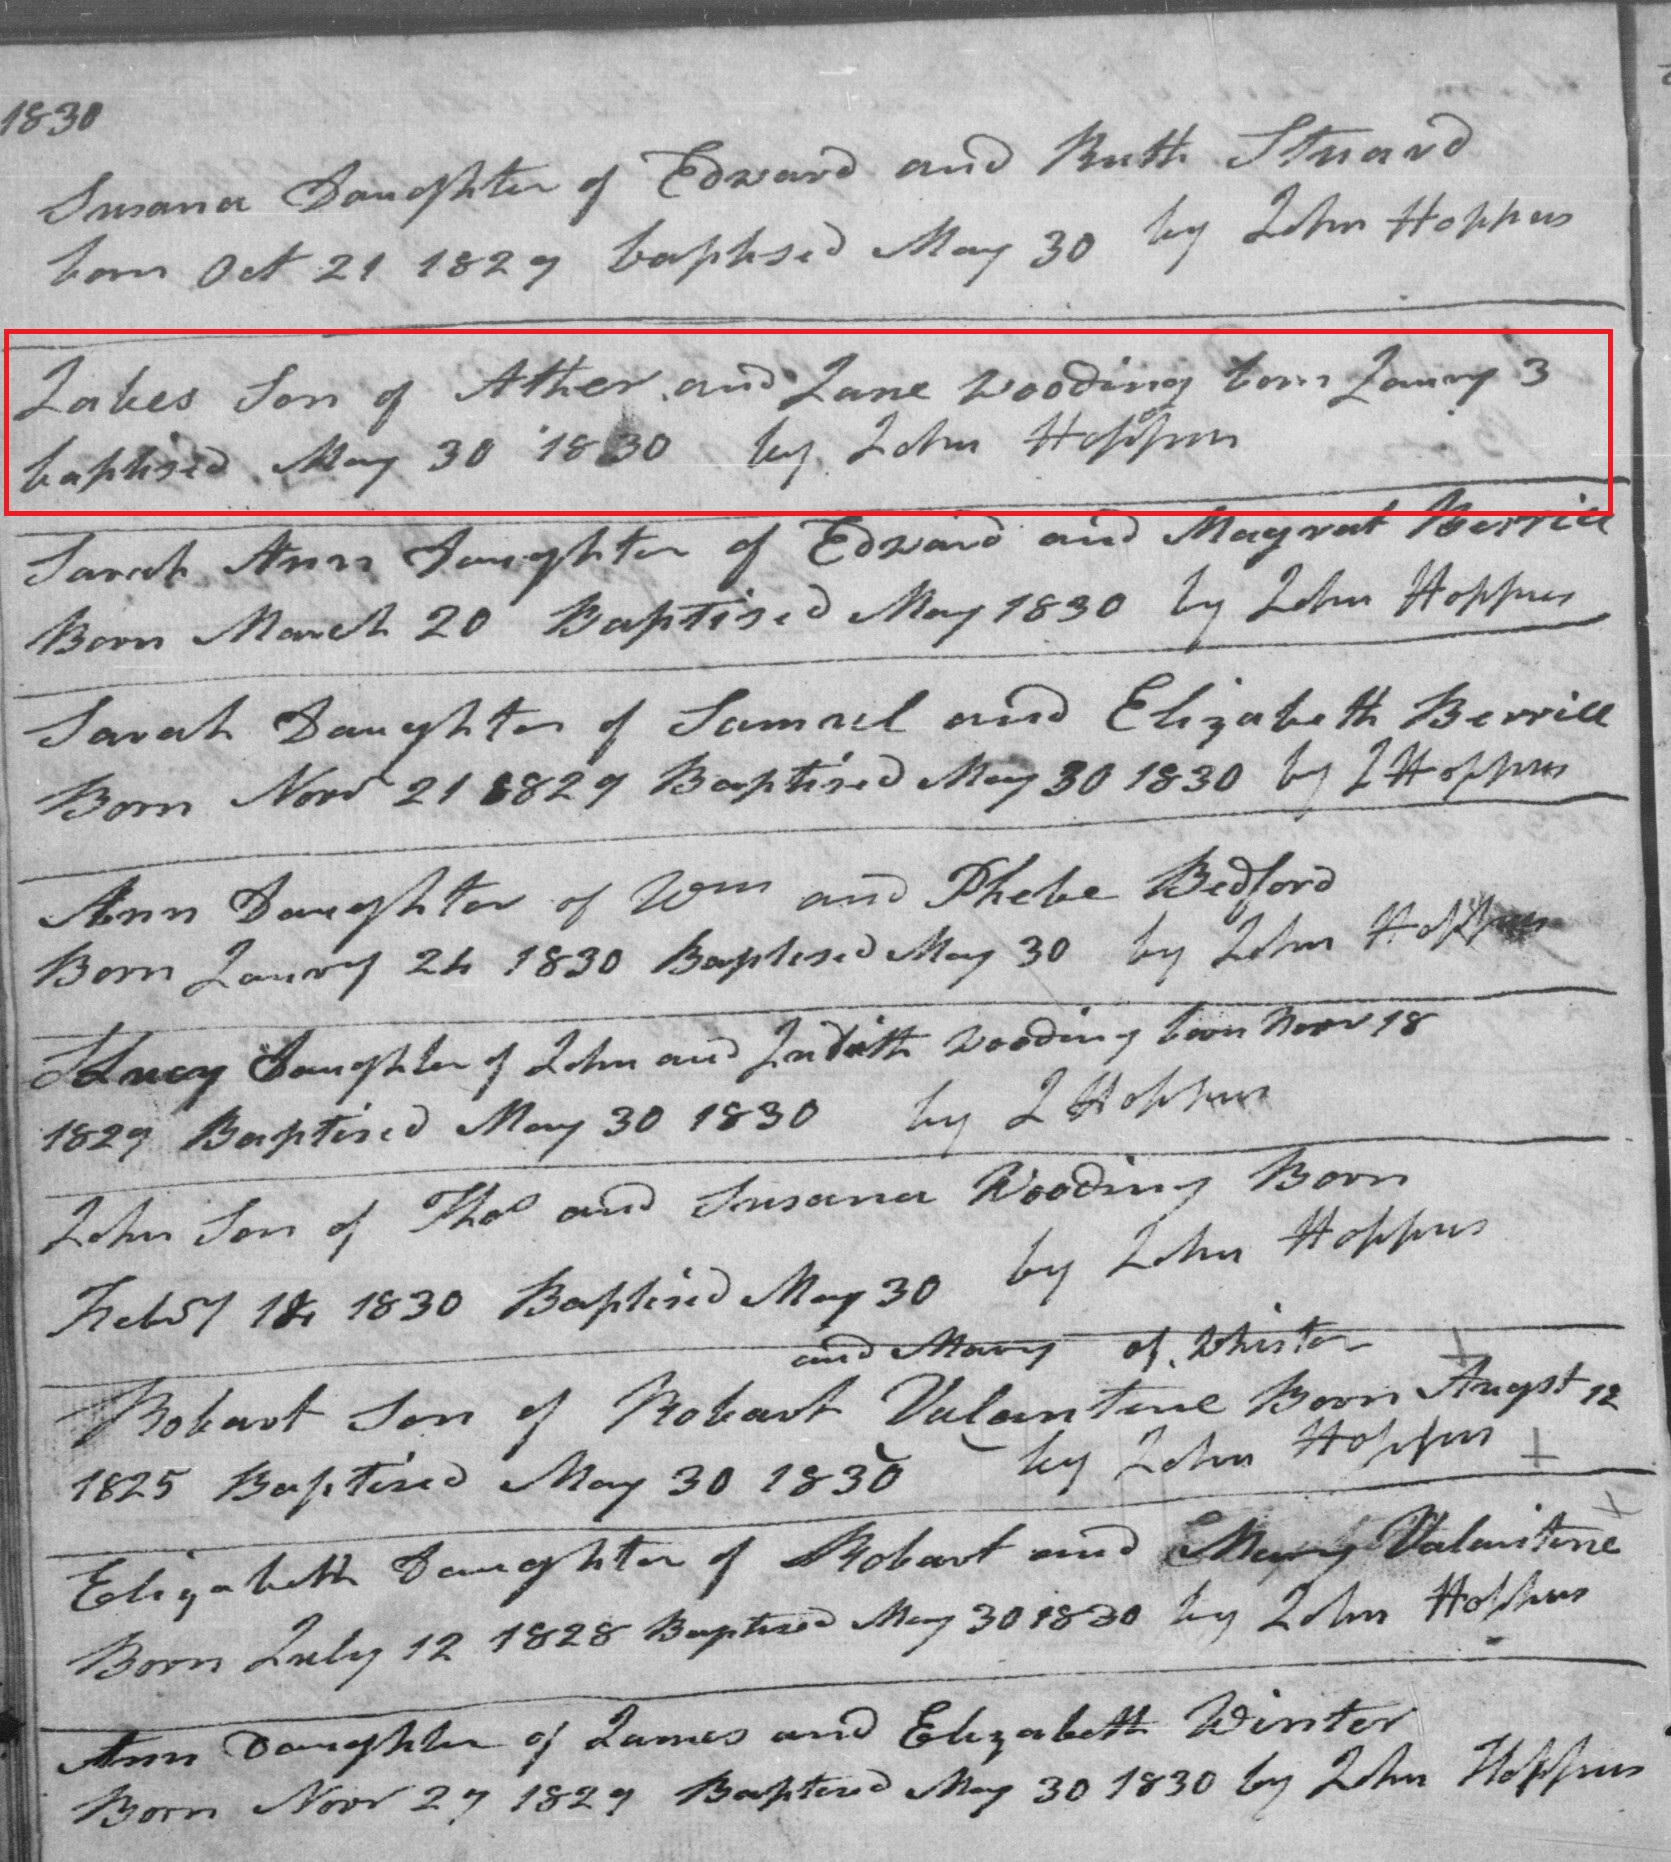 1830
Susana Daughter of Edward and Ruth Stuard
born Oct 21 1829 baptised May 30 by John Hoppus
Jabes Son of Ather and Jane Wooding born Janry 3
baptised May 30 1830 by John Hoppus
Sarah Ann Daughter of Edward and Magrat Berrill
Born March 20 Baptised May 1830 by John Hoppus
Sarah Daughter of Samuel and Elizabeth Berrill
Born Novr 21 1829 Baptised May 30 1830 by J Hoppus
Ann Daughter of Wm and Phebe Bedford
Born Janry 24 1830 Baptised May 30 by John Hoppus
Lucy Daughter of John and Judith Wooding born Novr 18
1829 Baptised May 30 1830 by J Hoppus
John Son of Thos and Susana Wooding Born
Febry 1830 Baptised May 30 by John Hoppus
and Mary of Whiston
Robart Son of Robart Valantine Born Augst 12
1825 Baptised May 30 1830 by John Hoppus
Elizabeth Daughter of Robart and Mary Valantine
Born July 12 1828 Baptised May 30 1830 by John Hoppus
Ann Daughter of James and Elizabeth Winter
Born Novr 27 1829 Baptised May 30 1830 by John Hoppus